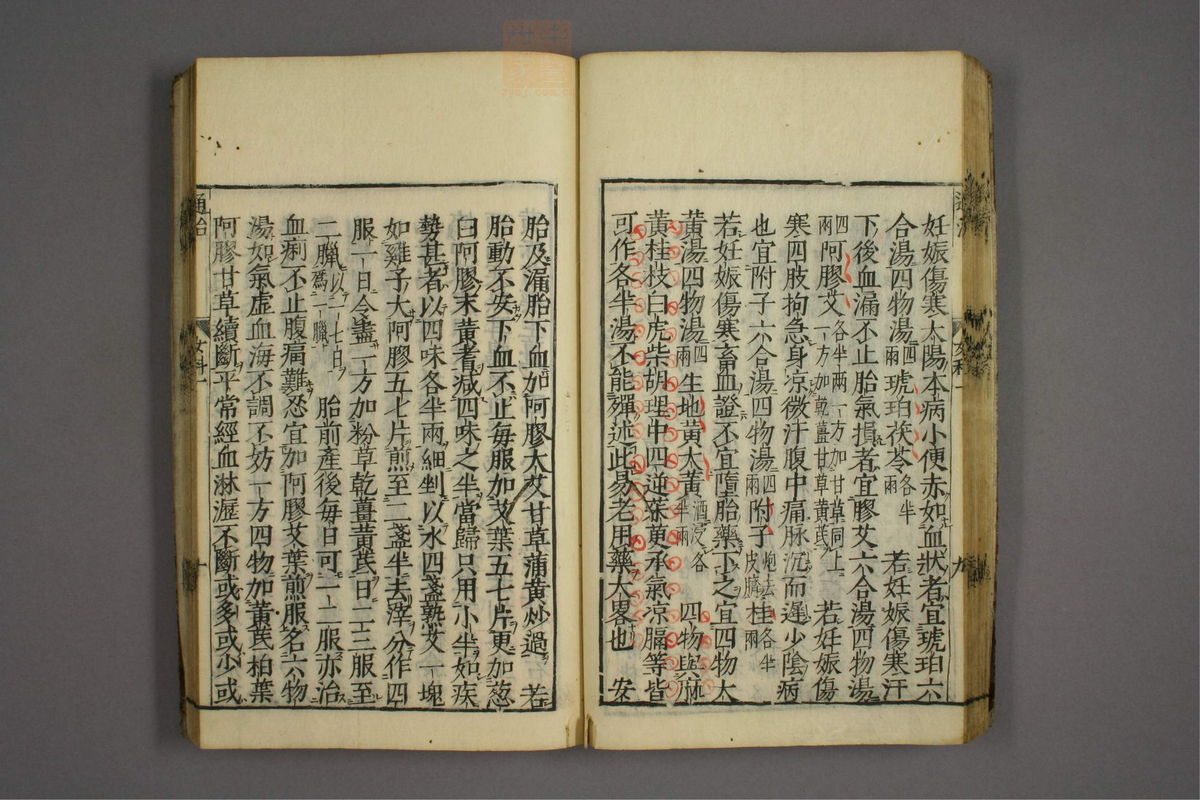 妊娠傷寒太陽本病小便赤如血狀者宜琥珀六
合湯四物湯四兩琥珀茯苓各半兩　若妊娠傷寒汗
下後血漏不止胎氣損者宜膠艾六合湯四物湯
四兩阿膠艾各半兩一方加甘草同上一方加乾薑甘草黃芪　若妊娠傷
寒四肢拘急身凉微汗腹中痛脉沉而遲少陰病
也宜附子六合湯四物湯四兩附子炮去皮臍桂各半兩
若妊娠傷寒畜血證不宜墮胎藥下之宜四物大
黃湯四物湯四兩生地黃大黃酒浸各半兩　四物與麻
黃桂枝白虎柴胡理中四逆茱萸承氣凉膈等皆
可作各半湯不能殫述此易老用藥大畧也　安
胎及漏胎下血加阿膠大艾甘草蒲黃炒過　若
胎動不安下血不止每服加艾葉五七片更加葱
白阿膠末黃耆减四味之半當歸只用小半如疾
勢甚者以四味各半兩細剉以水四盞熟艾一塊
如雞子大阿膠五七片煎至二盞半去滓分作四
服一日令盡一方加粉草乾薑黃芪日二三服至
二臘以二七日爲一臘　胎前產後每日可一二服亦治
血痢不止腹痛難忍宜加阿膠艾葉煎服名六物
湯如氣虛血海不調不妨一方四物加黃芪柏葉
阿膠甘草續斷平常經血淋瀝不斷或多或少或
通治
女科一
十
女科一
九